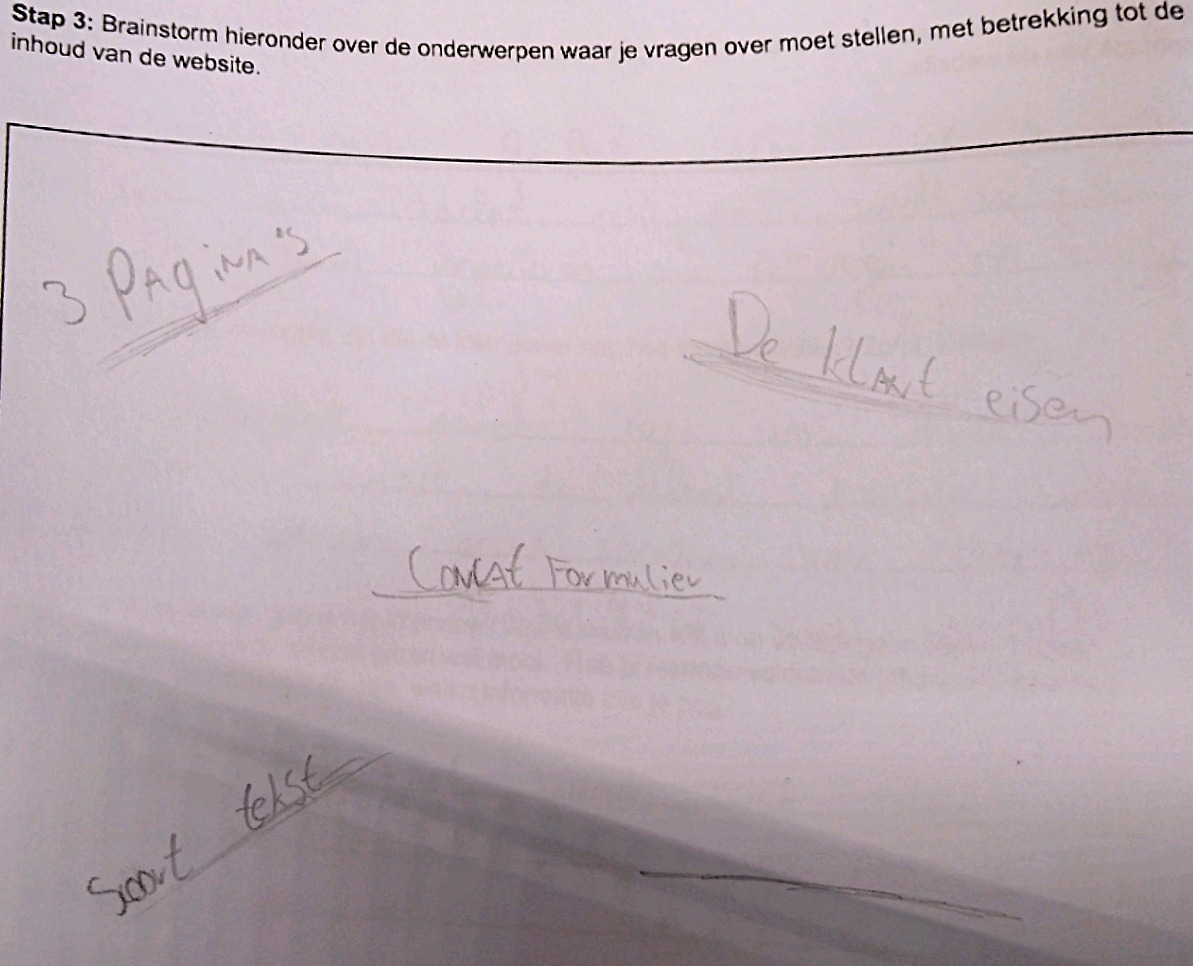 Stap 3: Brainstorm hieronder over de onderwerpen waar je vragen over moet stellen, met betrekking tot de
inhoud van de website.
3 PAgiNA's
De klANt eisen
ContAct Formulier
Soort tekst